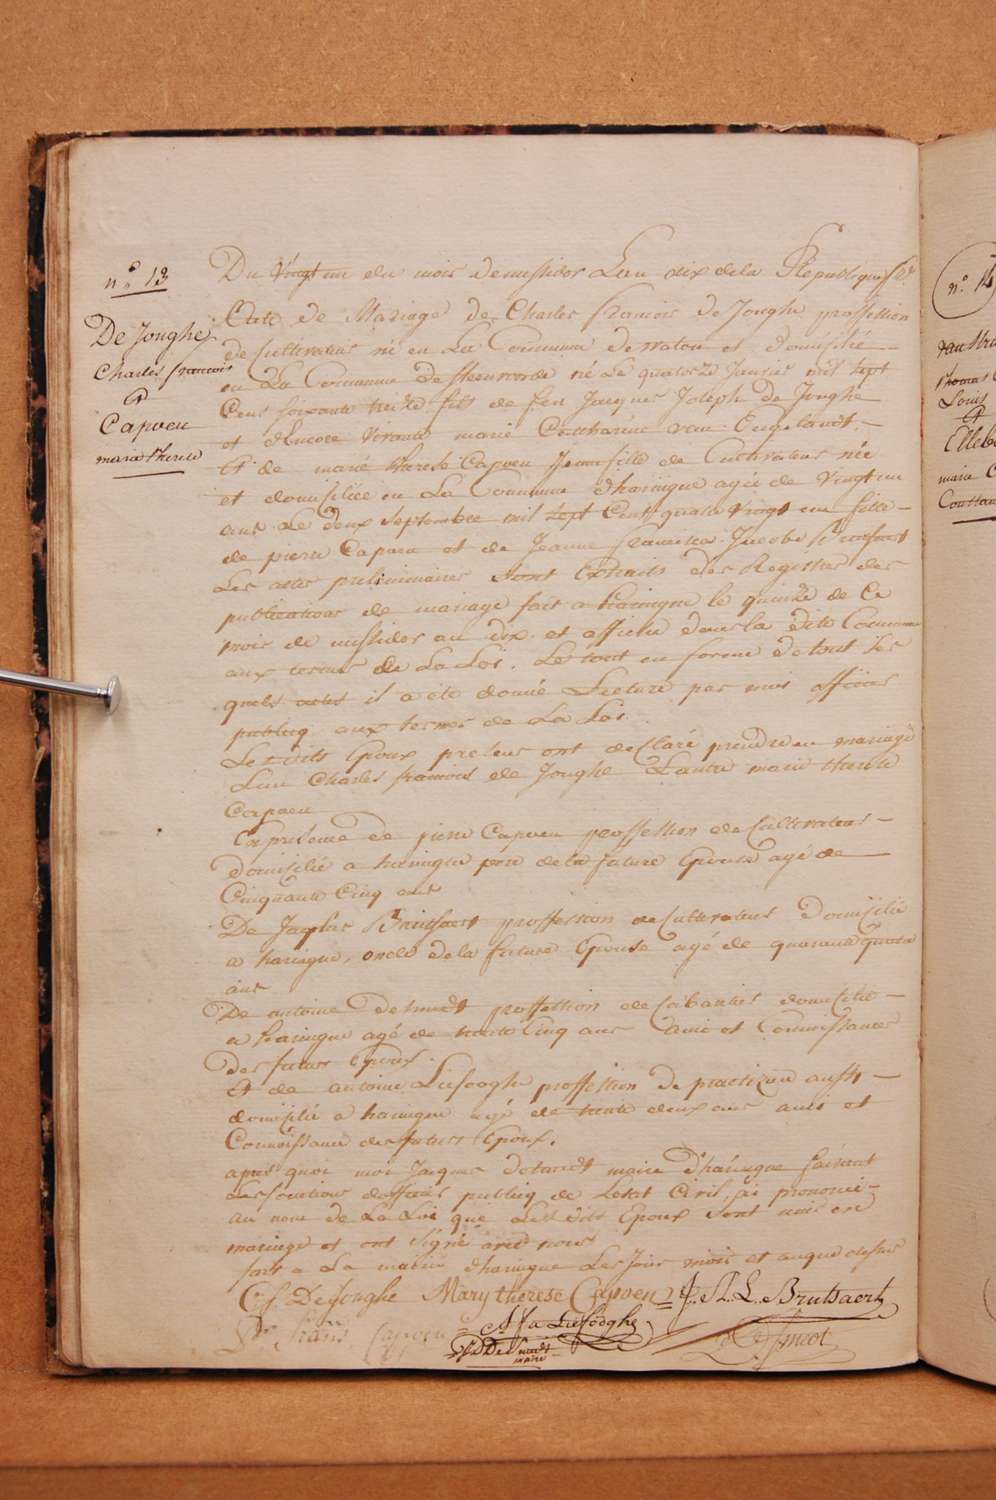 n.° 13
De Jonghe
Charles francois
&
Capoen
marie therese
Du Vingt un du mois de messidor L'an dix de la Republique fse
Acte de Mariage de Charles francois de Jonghe proffession
de Cultivateur né en La Commune de Watou et domicilié
en La Commune de Steenvorde né Le quatorze Janvier mil sept
Cent soixante treize fils de feu Jacques Joseph de Jonghe
et d'Encore Vivante marie Catharine van Engelandt.
Et de marie therese Capoen Jeune fille de Cultivateur née
et domiciliée en La Commune d'haringue agée de Vingt un
ans Le deux Septembre mil sept Cent quatre vingt un fille
de pierre Capoen et de Jeanne francisca Jacoba
Les actes preliminaires sont Extraits des Registres des
publications de mariage fait a haringue le quinze de Ce
mois de messidor an dix et affichu dans la dite Commune
aux termes de La Loi. Le tout en forme de tout Les
quels actes il a été donné Lecture par moi officier
publicq aux termes de La Loi
Lesdits Epoux presens ont declaré prendre en mariage
L'un Charles francois de Jonghe L'autre marie therese
Capoen
En presence de pierre Capoen proffession de Cultivateur
domicilié a haringue pere de la future Epouse agé de
Cinquante Cinq ans
De Jacques Brutsaert proffession de Cultivateur Domicilié
a haringue, oncle de la future Epouse agé de quarante quatre
ans
De antoine Desmidt proffession de Cabartier domicilié
a haringue agé de trente Cinq ans amie et Connoissance
des futurs Epoux.
Et de antoine Liefooghe proffession De practicien aussi
domicilié a haringue agé de trente deux ans amis et
Connoissance des futurs Epoux.
apres quoi moi Jacques desmidt maire D'haringue faisant
Les fonctions d'officier publicq de L'etat Civil, ai prononcé
au nom de La Loi que Lesdits Epoux sont unis en
mariage et ont Signé avec nous
fait a La mairie d'haringue Les Jour mois et an que dessus
C. f. De Jonghe Mary therese Capoen J. L. Brutsaert
Capoen A Liefooghe Desmidt
J D De Smidt
maire
n.° 14
van
thomas
Louis
&
marie C